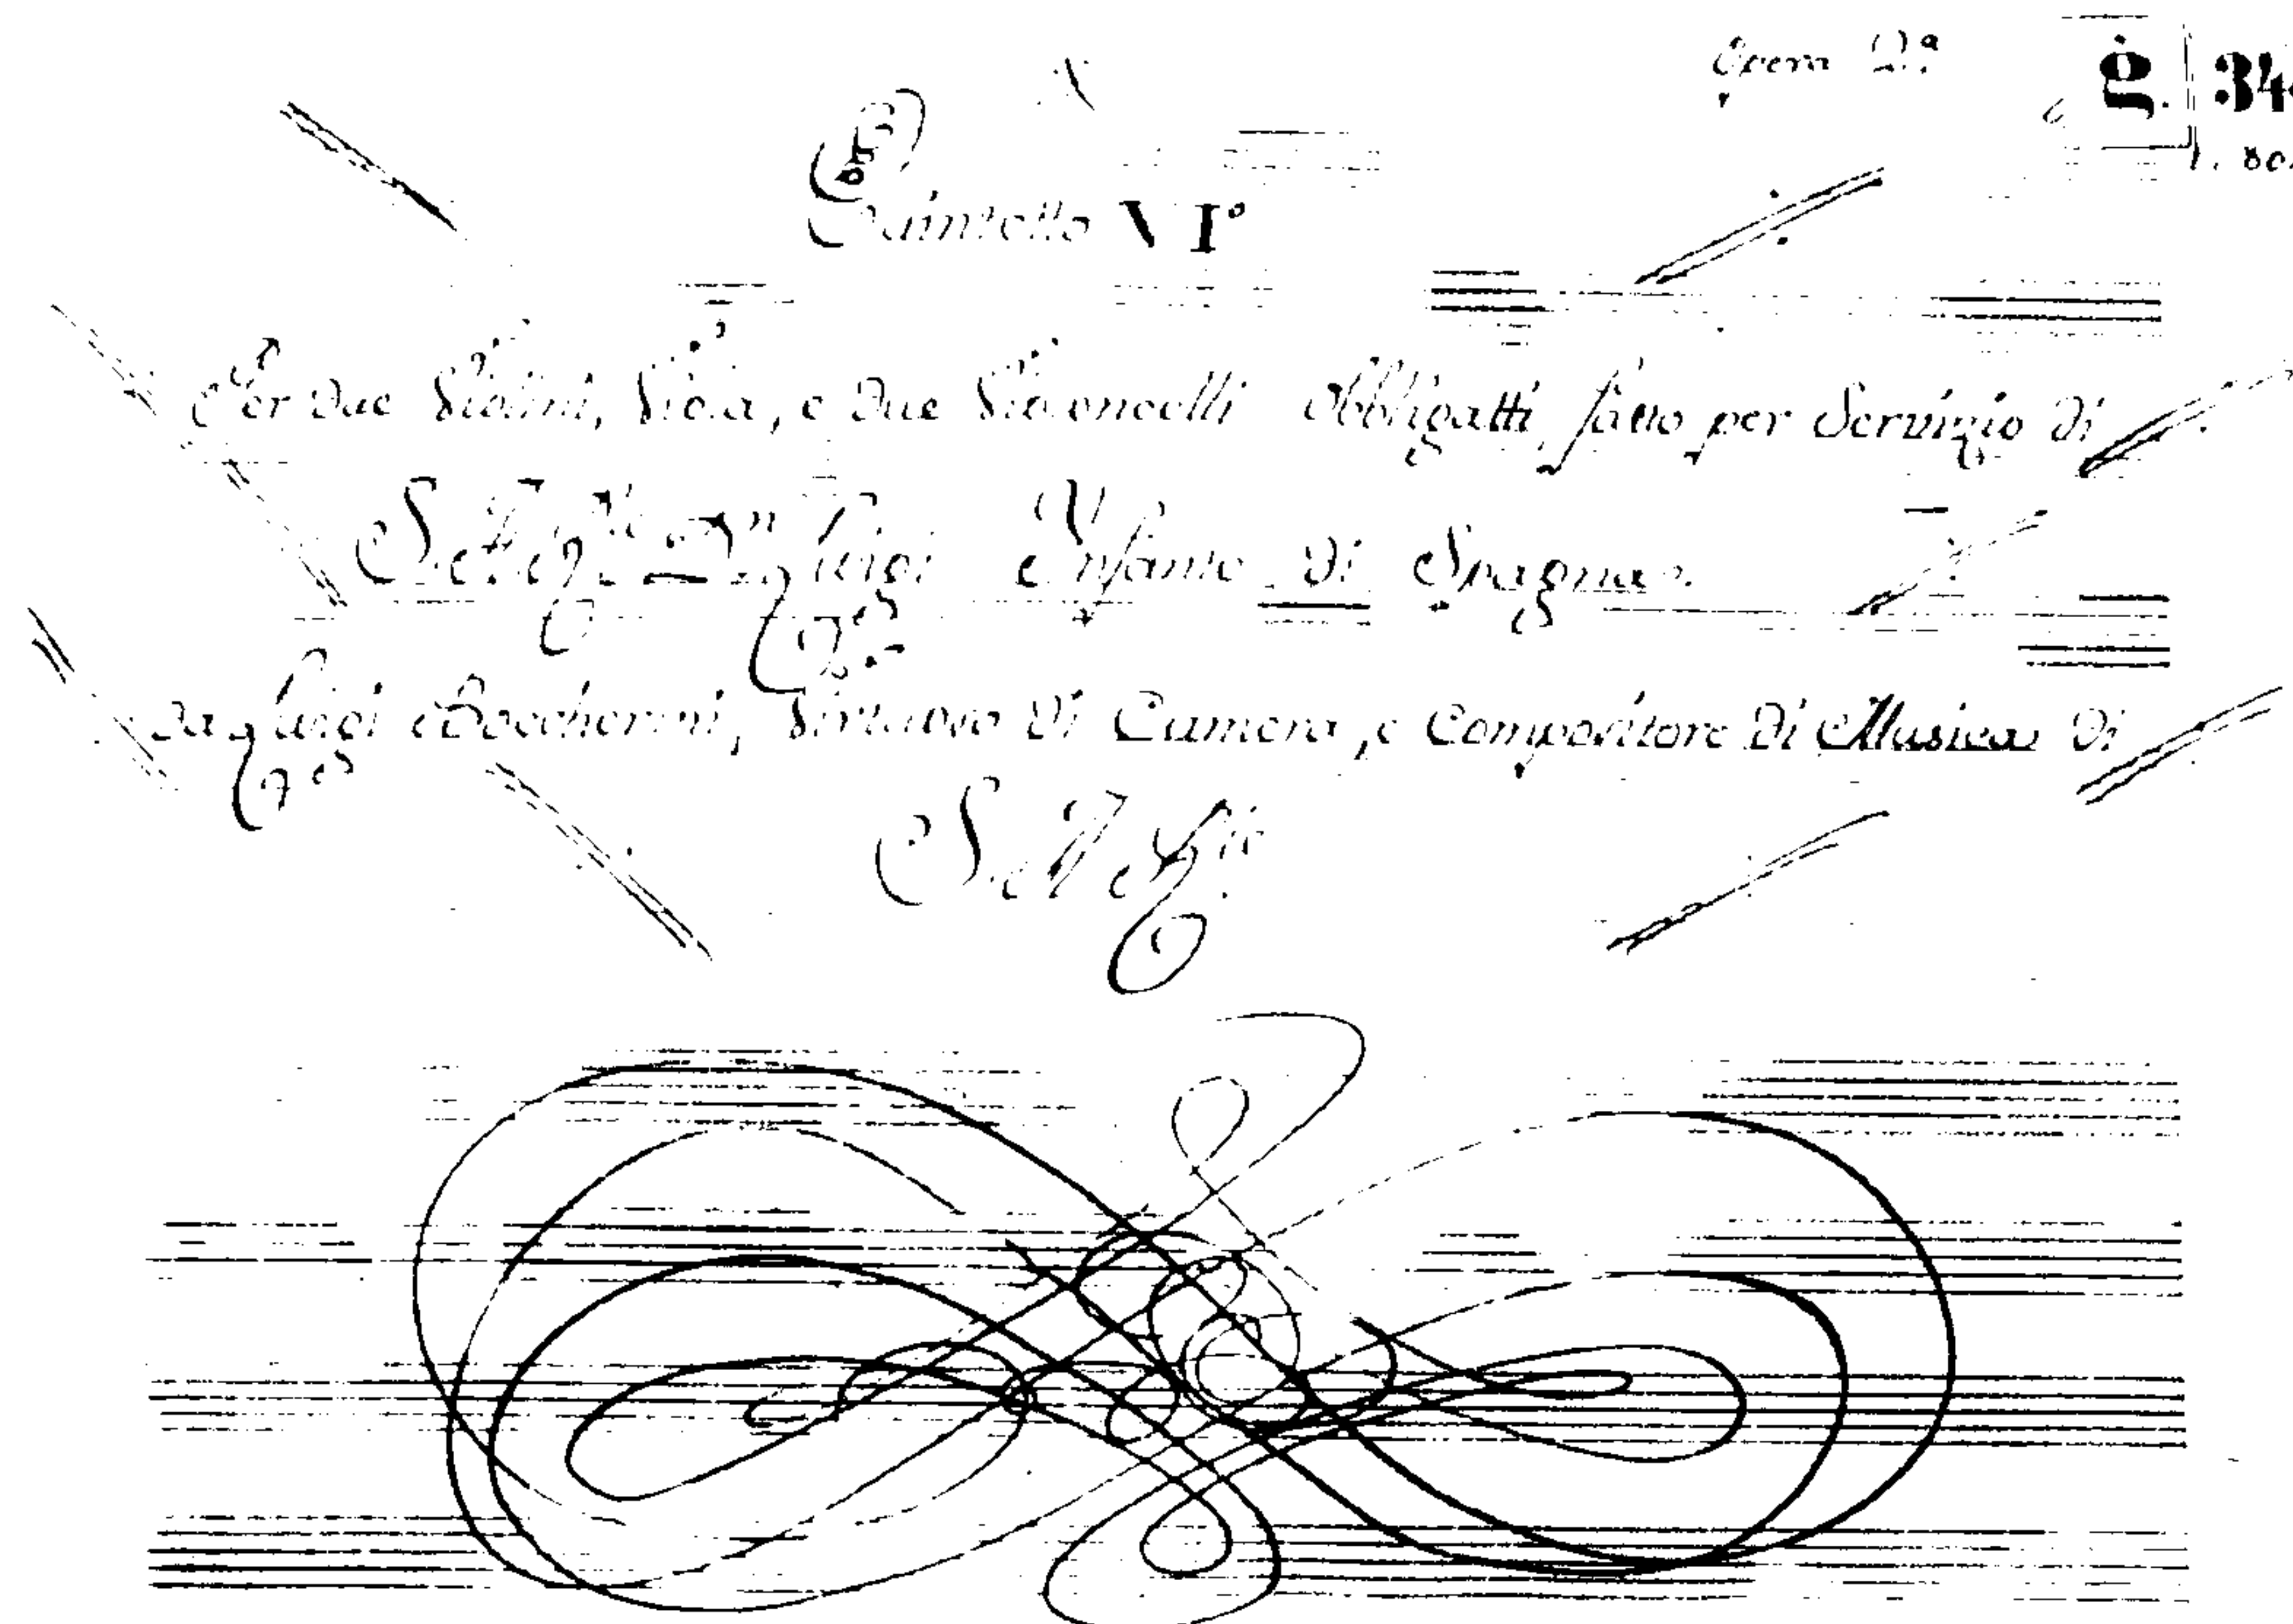 Opera
g. 34
Quintetto VI°
Per due Violini, Viola, e due Violoncelli obbligatti, fatto per Servizio di
Luigi Infante di Spagna
da Luigi Boccherini, Virtuoso di Camera, e Compositore di Musica di